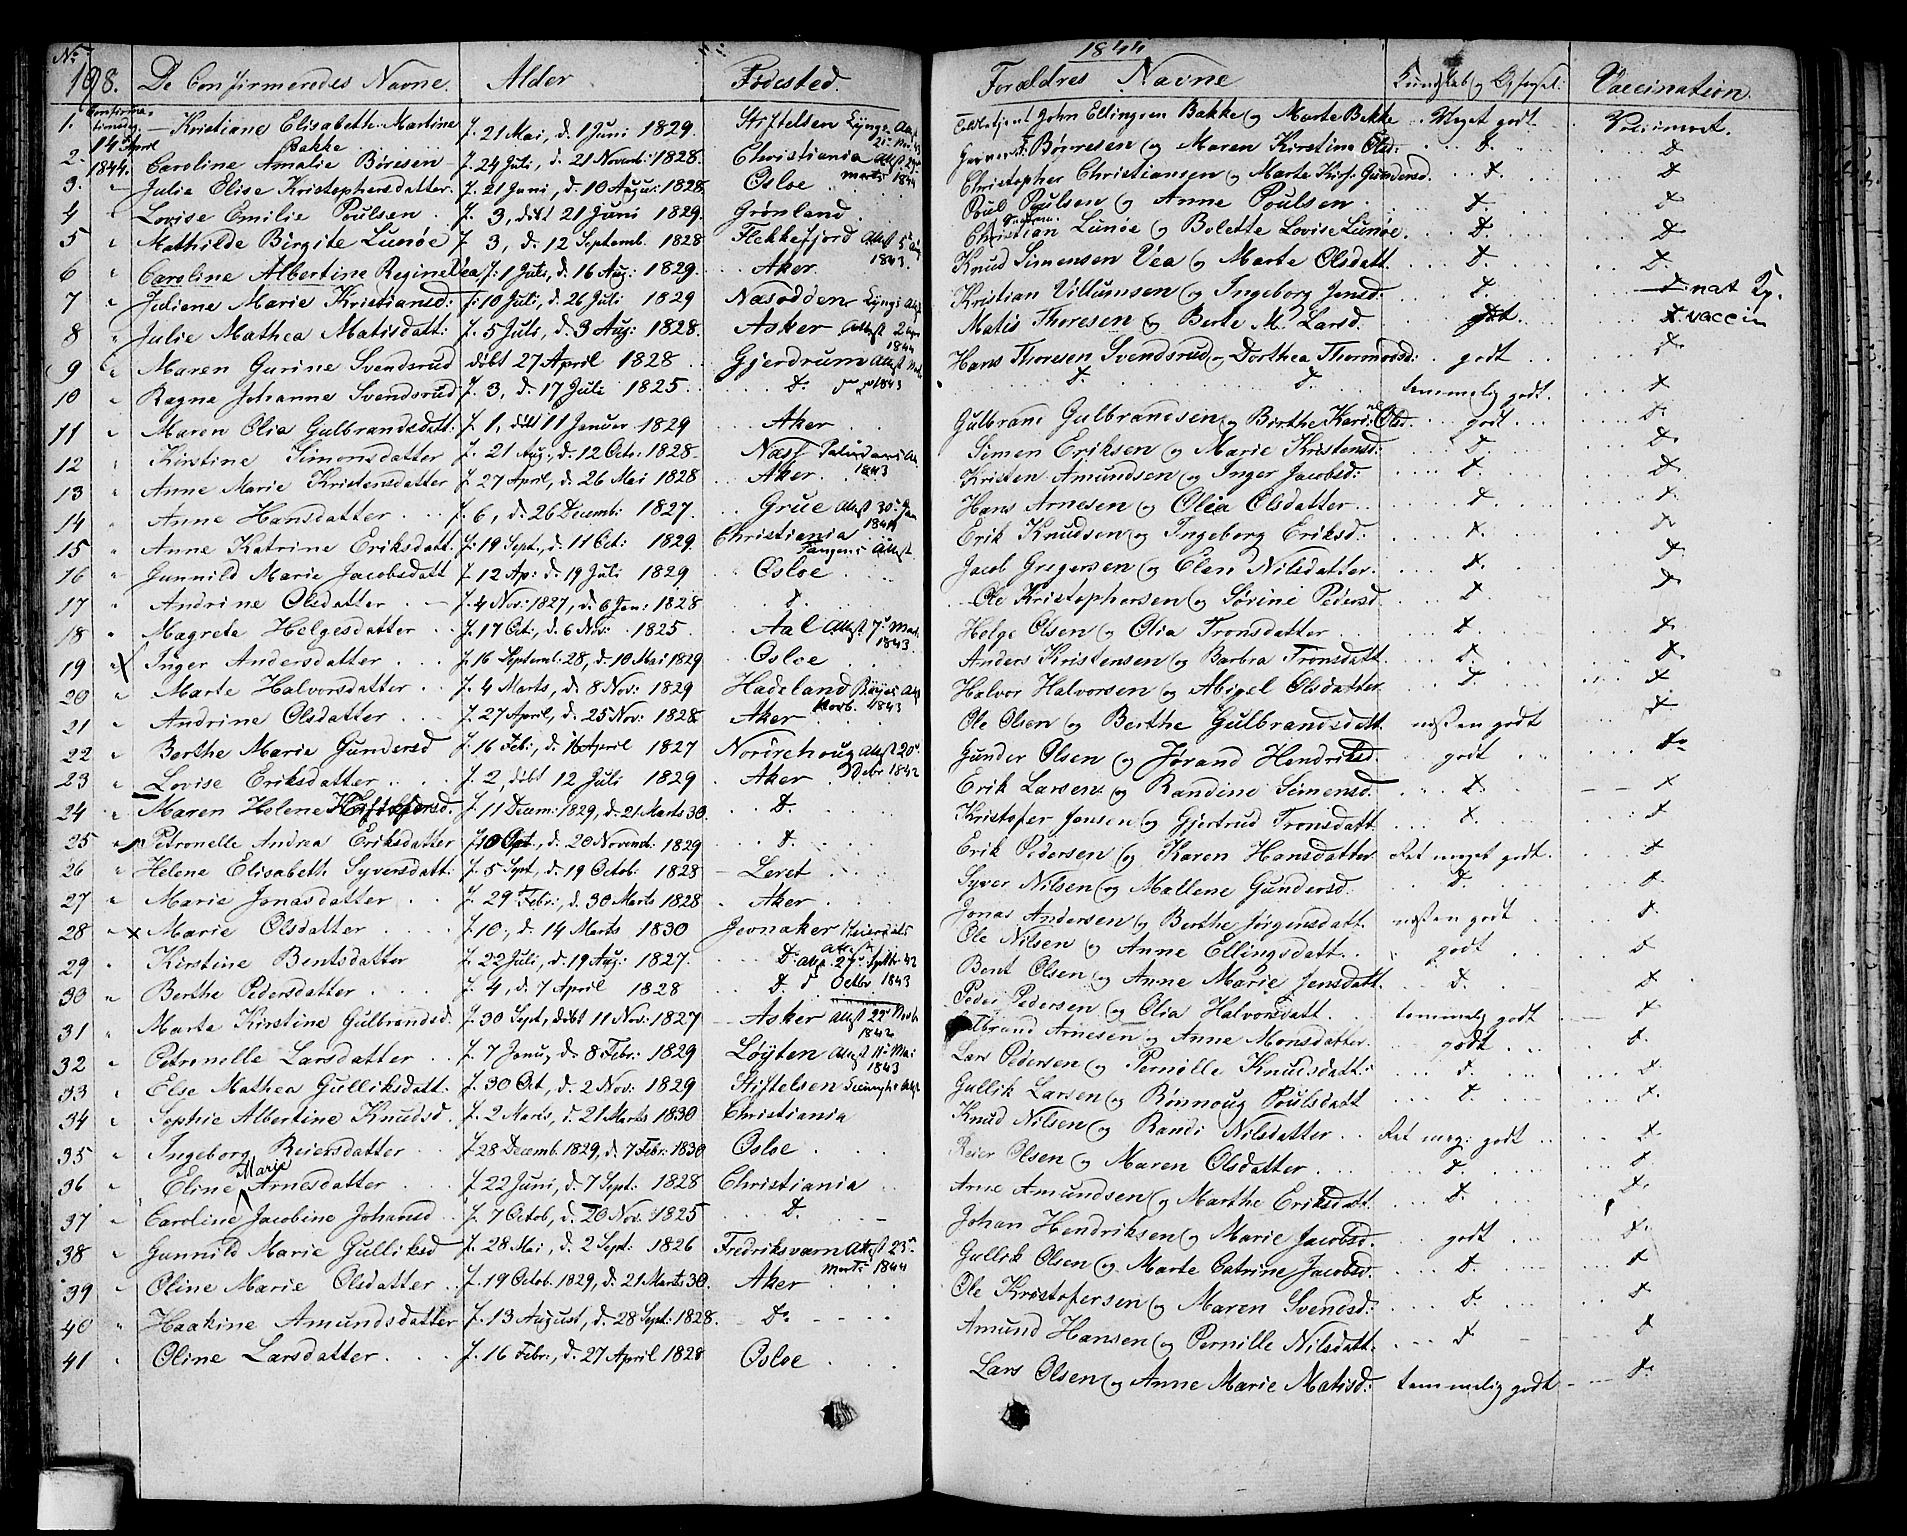 No. 198. De Confirmeredes Navne. Alder Fødested. 1844 Forældres Navne Kundskab og Opførsel: Vaccination.
Confirmationsdag 14 April 1844.
1. Kristiane Elisabeth Martine Bakke f. 21 Mai, d. 1 Juni 1829. Stiftelsen John Ellingsen Bakke og Marte Bakke Meget godt Vaccineret.
2. Caroline Amalie Børesen f. 24 Juli, d. 21 Novemb: 1828. Christiania Attest 29 Marts 1844 Børresen og Maren Kirstine Olsd: D. D.
3. " Julie Elise Kristophersdatter. f. 21 Juni, d. 10 Augu: 1828. Osloe Christopher Christiansen og Marte Kirs: Gundersd. D. D.
4 " Lovise Emilie Poulsen f. 3, døbt 21 Juni 1829. Grønland Poul Poulsen og Anne Poulsen D. D.
5 " Mathilde Birgite Lunøe f. 3, d. 12 Septemb. 1828 Flekkefjord Attest 1843. Christian Lunøe og Bolette Lovise Lunøe. D. D.
6 " Caroline Albertine Regine Vea f. 1 Juli, d. 16 Aug: 1829. Aker. Knud Simensen Vea og Marte Olsdatt. D. D.
7 " Juliene Marie Kristiansd: f. 10 Juli, d. 26 Juli 1829 Nasodden Kristian Villumsen og Ingeborg Jensd: D. nat
8 " Julie Mathea Matisdatt: f. 5 Juli, d. 3 Aug: 1828. Asker Attest 1844 Matis Thoresen og Berte M. Larsd. godt. vaccin
9 " Maren Gurine Svendsrud døbt 27 April 1828 Gjerdrum Attest 1843 Hans Thoresen Svendsrud og Dorthea Thormodsd: godt D
10 " Ragne Johanne Svendsrud f. 3, d. 17 Juli 1825. D. D. D. temmelig godt. D
11 " Maren Olia Gulbrandsdatt: f. 1, døbt 11 Januer 1829 Aker Gulbrand Gulbrandsen og Birthe Kari Olsd. godt D.
12 " Kirstine Simonsdatter f. 21 Aug:, d. 12 Oct: 1828. Næs 1843 Simen Eriksen og Marie Kristensd: D. D.
13 " Anne Marie Kristensdatter f. 27 April, d. 26 Mai 1828 Aker. Kristen Amundsen og Inger Jacobsd: D. D.
14 " Anne Hansdatter f. 6, d. 26 Decemb: 1827. Grue Attest 30 Jan 1844 Hans Arnesen og Olia Olsdatter D. D.
15 " Anne Katrine Eriksdatt: f. 19 Sept., d. 11 Oct: 1829. Christiania Attest Erik Knudsen og Ingeborg Eriksd: D. D.
16 " Gunnild Marie Jacobsdatt f. 12 Ap: d. 19 Juli 1829 Osloe Jacob Gregersen og Elen Nilsdatter. D. D.
17 " Andrine Olsdatter f. 4 Nov: 1827, d. 6 Jan: 1828 D. Ole Kristophersen og Sørine Pedersd. D. D.
18 " Magrete Helgesdatter f. 17 Oct:, d. 6 Nov: 1825. Aal Attest 7 1843. Helge Olsen og Olia Tronsdatter D. D.
19 " Inger Andersdatter f. 16 Septemb. 28, d. 10 Mai 1829 Osloe Anders Kristensen og Barbra Tronsdatt. D. D.
20 " Marte Halvorsdatter f. 4 Marts, d. 8 Nov: 1829 Hadeland 1843 Halvor Halvorsen og Abigel Olsdatter D. D
21 " Andrine Olsdatter f. 27 April, d. 25 Nov: 1828. Aker Ole Olsen og Berthe Gulbrandsdatt. næsten godt D
22 " Berthe Marie Gundersd f. 16 Feb:, d. 16 April 1827 Norørehoug Attest 20 1842 Gunder Olsen og Jørand Hendriksd. godt D.
23 " Lovise Eriksdatter f. 2, døbt 12 Juli 1829. Aker Erik Larsen og Randine Simensd. D. D
24 " Maren Helene Kristofersd. f. 11 Decem: 1829, d. 21 Marts 30. D. Kristofer Jensen og Gjertrud Tronsdatt. D. D.
25 " Petronelle Andrea Eriksdatter f. 10 Oct., d. 20 Novemb: 1829 D. Erik Pedersen og Karen Hansdatter Ret meget godt. D
26 " Helene Elisabeth Syversdatt: f. 5 Sept, d. 19 Octob: 1828 Leret Syver Nilsen og Mallene Gundersd: D. D.
27 " Marie Jonasdatter f. 29 Febr:, d. 30 Marts 1828 Aker. Jonas Andersen og Berthe Jørgensdatt. næsten godt D.
28 " x Marie Olsdatter f. 10, d. 14 Marts 1830 Jevnaker Attest Ole Nilsen og Anne Ellingsdatt. godt D
29 " Kirstine Bentsdatter f. 22 Juli, d. 19 Aug: 1827. D. Attest 27 Septbr 42 Bent Olsen og Anne Marie Jensdatt. D. D
30 " Berthe Pedersdatter f. 4, d. 7 April 1828 D. Octbr 1843 Peder Pedersen og Olia Halvorsdatt. temmelig godt D
31 " Marte Kirstine Gulbrandsd. f. 30 Sept, døbt 11 Nov: 1827 Asker Attest 22 1842 Gulbrand Arnesen og Anne Monsdatter godt D.
32 " Petronelle Larsdatter f. 7 Janu, d. 8 Febr: 1829 Løyten Attest 11 Mai 1843 Lars Pedersen og Pernille Knudsdatt: D. D.
33 " Else Mathea Gulliksdatt: f. 30 Oct, d. 2 Nov: 1829 Stiftelsen Gullik Larsen og Rønnoug Poulsdatt D. D.
34 " Sophie Albertine Knudsd. f. 2 Marts, d. 21 Marts 1830 Christiania Knud Nilsen og Randi Nilsdatter Ret meg: godt D
35 " Ingeborg Reiersdatter f. 28 Decemb. 1829, d. 7 Febr: 1830 Osloe Reier Olsen og Maren Olsdatter D. D.
36 " Eline Marie Arnesdatter f. 22 Juni, d. 7 Sept: 1828 Christiania Arne Amundsen og Marthe Eriksdatt. D. D.
37 " Caroline Jacobine Johansd f. 7 Octob, d. 20 Nov: 1825 D. Johan Hendriksen og Marie Jacobsd. godt D.
38 " Gunnild Marie Gulliksd f. 28 Mai, d. 2 Sept: 1826 Fredriksværn Attest 23 Marts 1844 Gullik Olsen og Marte Catrine Jacobsd. D. D
39 " Oline Marie Olsdatter f. 19 Octob. 1829, d. 21 Marts 30. Aker Ole Kristofersen og Maren Svendsd: D. D
40 " Haakine Amundsdatter f. 13 August, d. 28 Sept: 1828. D. Amund Hansen og Pernille Nilsdatt. D. D
41 " Oline Larsdatter f. 16 Febr:, d. 27 April 1828 Osloe Lars Olsen og Anne Marie Matisd: temmelig godt D.